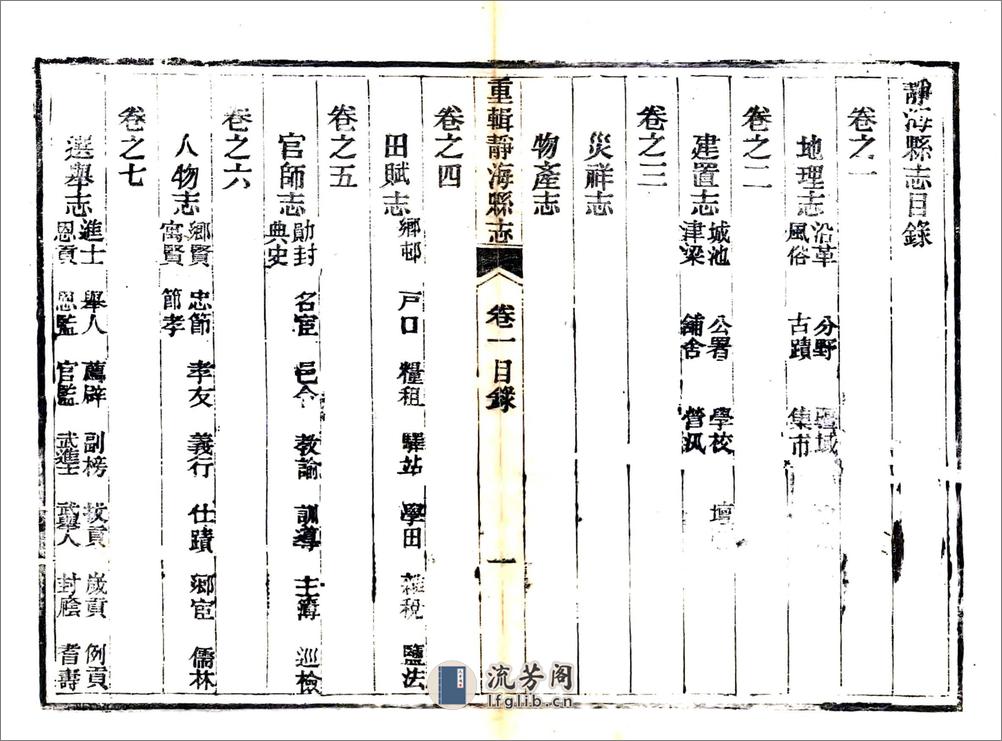 靜海縣志目錄
卷之一
地理志 沿革 分野 疆域
風俗 古蹟 集市
卷之二
建置志 城池 公署 學校 壇
津梁 舖舍 營汛
卷之三
災祥志
物產志
重輯靜海縣志 卷一目錄 一
卷之四
田賦志 鄉邨 戶口 糧租 驛站 學田 雜稅 鹽法
卷之五
官師志 勛封 名宦 邑令 教諭 訓導 主簿 巡檢
典史
卷之六
人物志 鄉賢 忠節 孝友 義行 仕蹟 鄉宦 儒林
寓賢 節孝
卷之七
選舉志 進士 舉人 薦辟 副榜 拔貢 歲貢 例貢
恩貢 恩監 官監 武進士 武舉人 封廕 耆壽
流芳阁
lfglib.cn